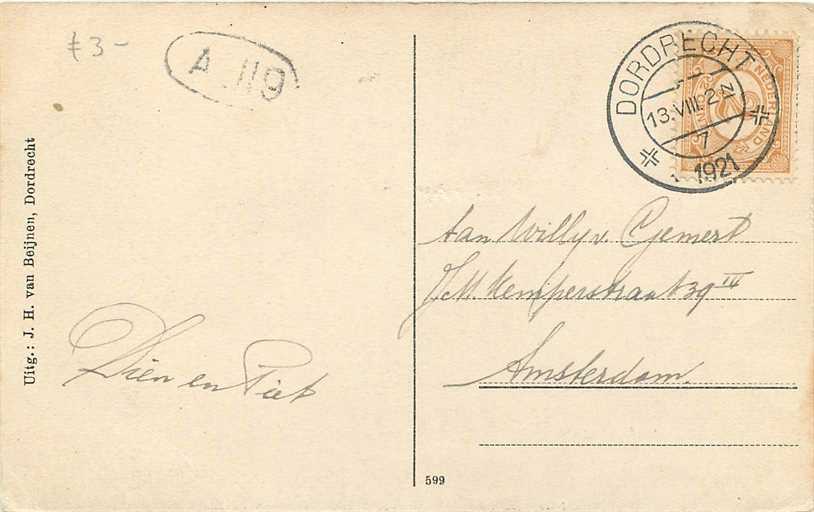 £3-
A 119
DORDRECHT
13.VIII.2 N
7
1921
NEDERLAND
Uitg.: J. H. van Beijnen, Dordrecht
Dien en Piet
Aan Willy v. Gemert
J.M. Kemperstraat 39 III
Amsterdam.
599